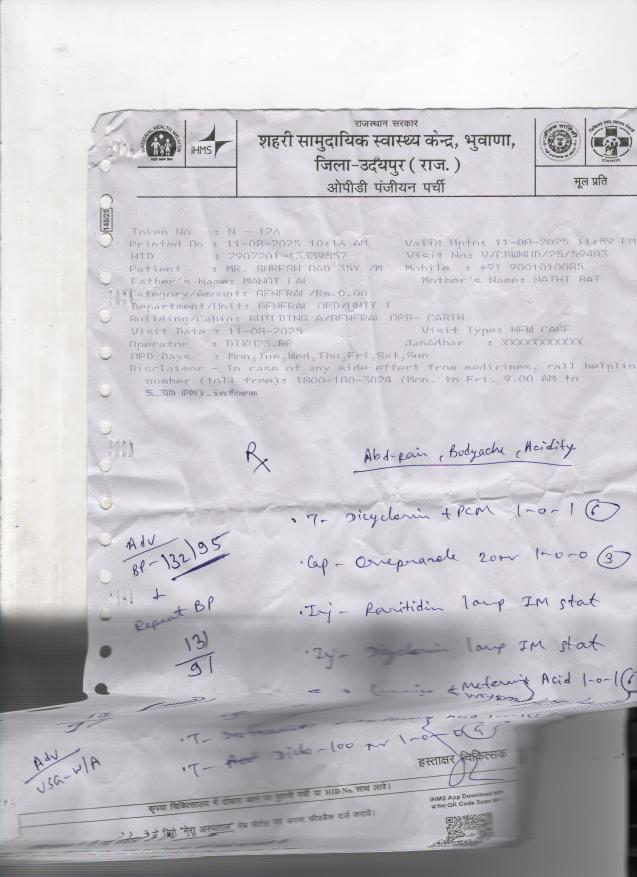 राजस्थान सरकार
शहरी सामुदायिक स्वास्थ्य केन्द्र, भुवाणा,
जिला-उदयपुर ( राज. )
ओपीडी पंजीयन पर्ची
मूल प्रति
NATIONAL HEALTH MISSION
iHMS
148/25
Token No : N - 126
Printed On : 11-08-2025 10:16 AM Valid Upto: 11-08-2025 11:59 PM
HID : Visit No:
Patient : MR. SURESH 35Y /M Mobile : +91 9001010085
Father's Name: MANGI LAL Mother's Name: NATHI BAI
Category/Amount: GENERAL /Rs.0.00
Department/Unit: GENERAL OPD/UNIT 1
Building/Cabin: BUILDING A/GENERAL OPD- CABIN
Visit Date : 11-08-2025 Visit Type: NEW CASE
Operator : JanAadhar : XXXXXXXXXXX
OPD Days : Mon,Tue,Wed,Thu,Fri,Sat,Sun
Disclaimer - In case of any side effect from medicines, call helplin
number (toll free): 1800-180-3024 (Mon. to Fri. 9.00 AM to
Rx Abd-pain, Bodyache, Acidity
T- Dicyclomin + PCM 1-0-1 (6)
Adv
BP- 132/95
Cap- Omeprazole 20 1-0-0 (3)
+
Repeat BP
Inj- Ranitidin 1amp IM stat
131
91
Inj- Dicyclomin 1amp IM stat
Mefenamic Acid 1-0-1
Adv
USG-W/A
T- 100 1-0-0
हस्ताक्षर चिकित्सक
कृपया चिकित्सालय में दोबारा आने पर पुरानी पर्ची या HID No. साथ लावें।
iHMS App Download
QR Code Scan
"मेरा अस्पताल" वेब पोर्टल पर अपना फीडबैक दर्ज करायें।